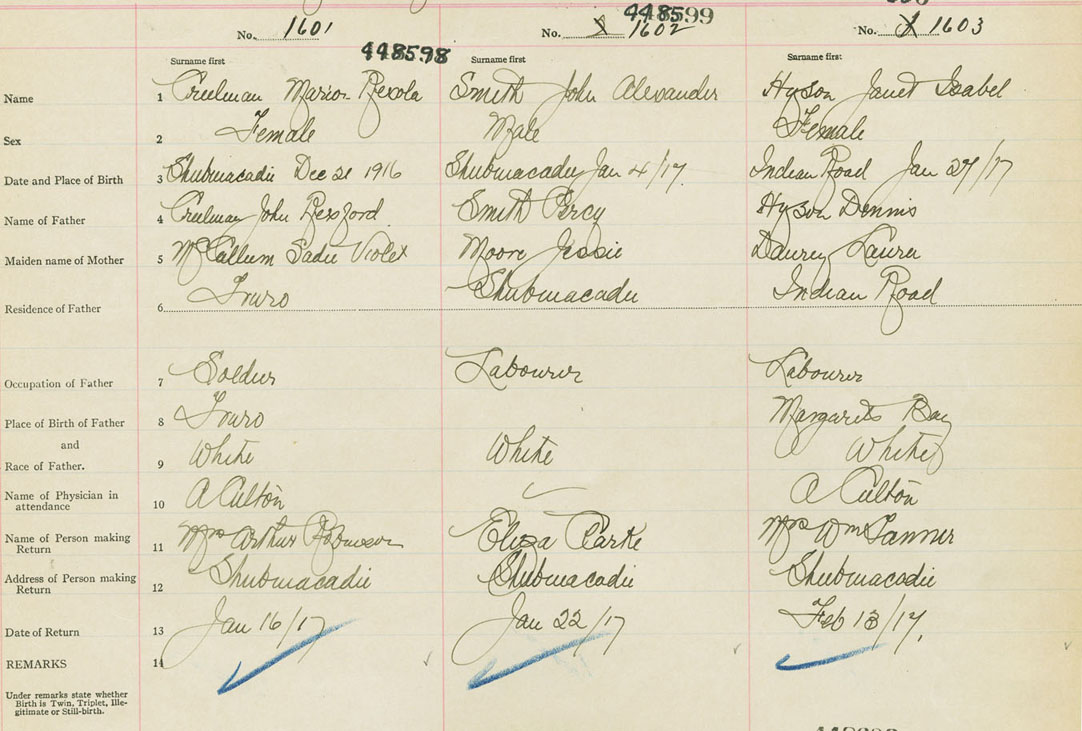 No. 1601
448598
No. 1602
448599
No. 1603
Surname first
Surname first
Surname first:
Name 1 Creelman Marion Rexola Smith John Alexander Hyson Janet Isabel
Sex 2 Female Male Female
Date and Place of Birth 3 Shubenacadie Dec 21 1916 Shubenacadie Jan 4/17 Indian Road Jan 27/17
Name of Father 4 Creelman John Rexford Smith Percy Hyson Dennis
Maiden name of Mother 5 McCallum Sadie Violet Moore Jessie Daurey Laura
Residence of Father 6 Truro Shubenacadie Indian Road
Occupation of Father 7 Soldier Labourer Labourer
Place of Birth of Father 8 Truro Margarets Bay
and
Race of Father. 9 White White White
Name of Physician in
attendance 10 A Culton A Culton
Name of Person making
Return 11 Mrs Arthur Robinson Eliza Parke Mrs Wm Tanner
Address of Person making
Return 12 Shubenacadie Shubenacadie Shubenacadie
Date of Return 13 Jan 16/17 Jan 22/17 Feb 13/17.
REMARKS 14
Under remarks state whether
Birth is Twin, Triplet, Ille-
gitimate or Still-birth.